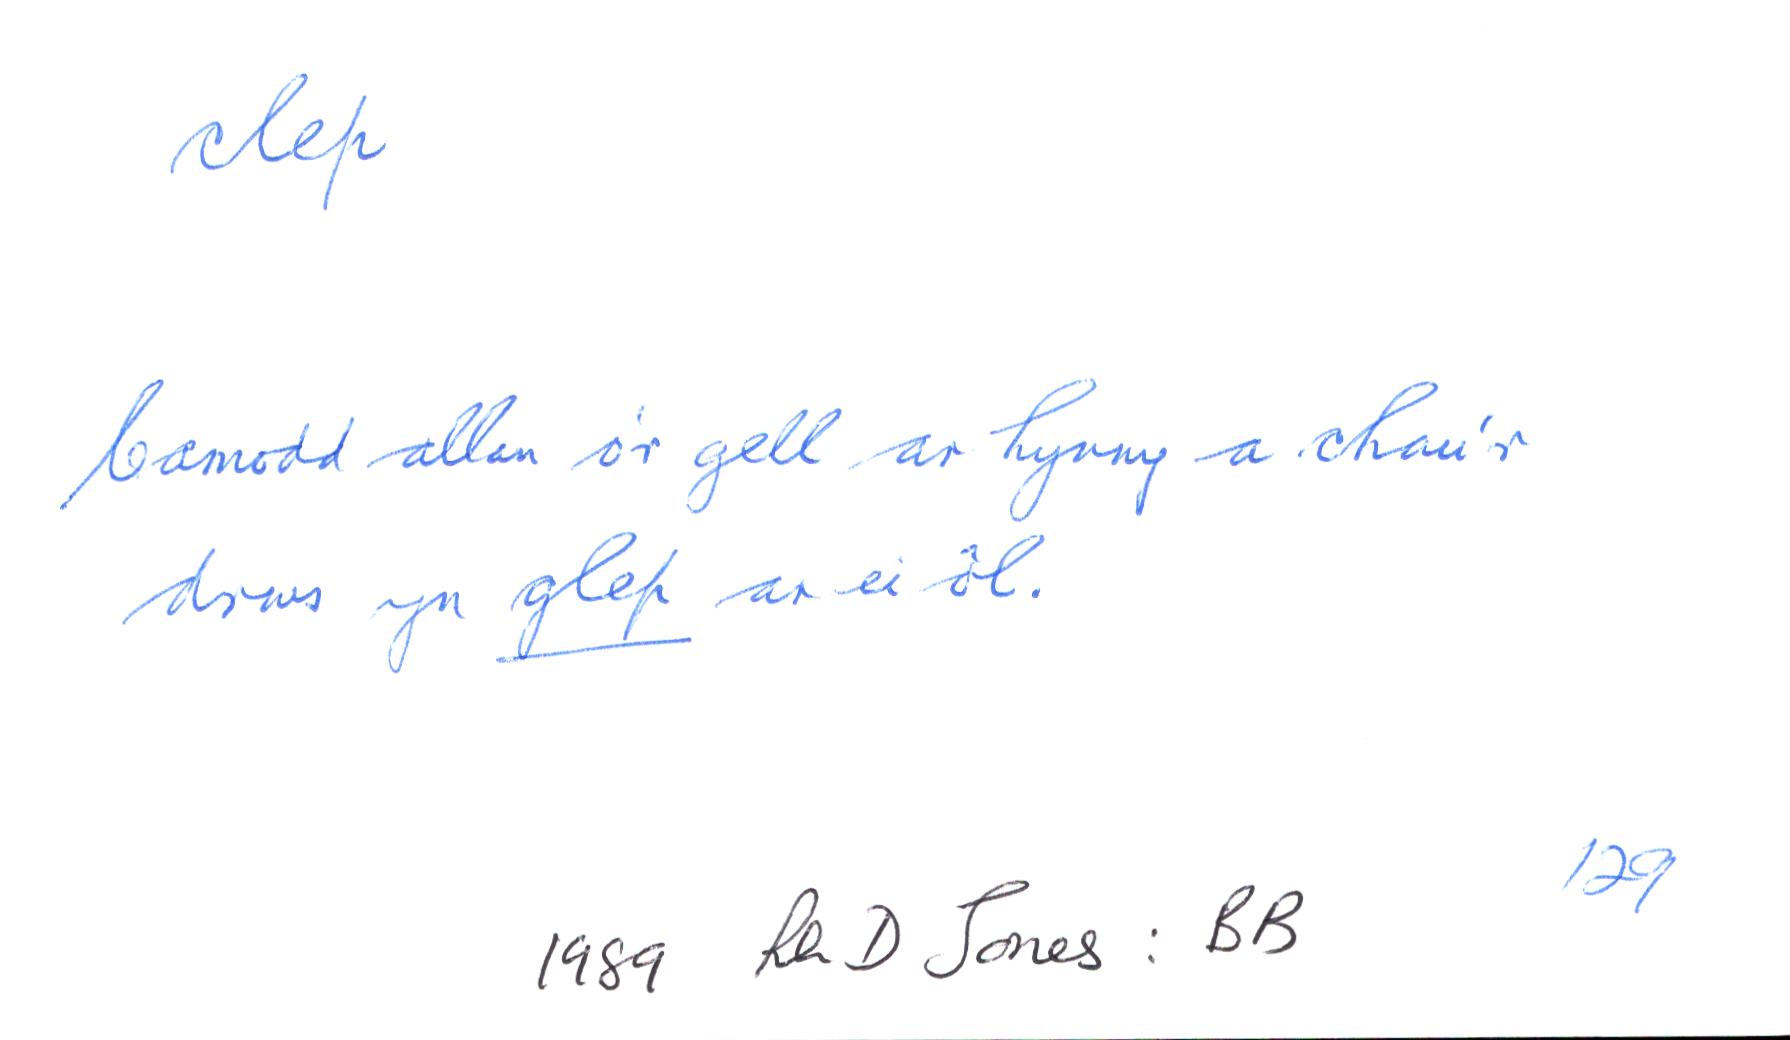 clep
Camodd allan o'r gell ar hynny a chau'r
drws yn glep ar ei ôl.
129
1989 Rh D Jones : BB